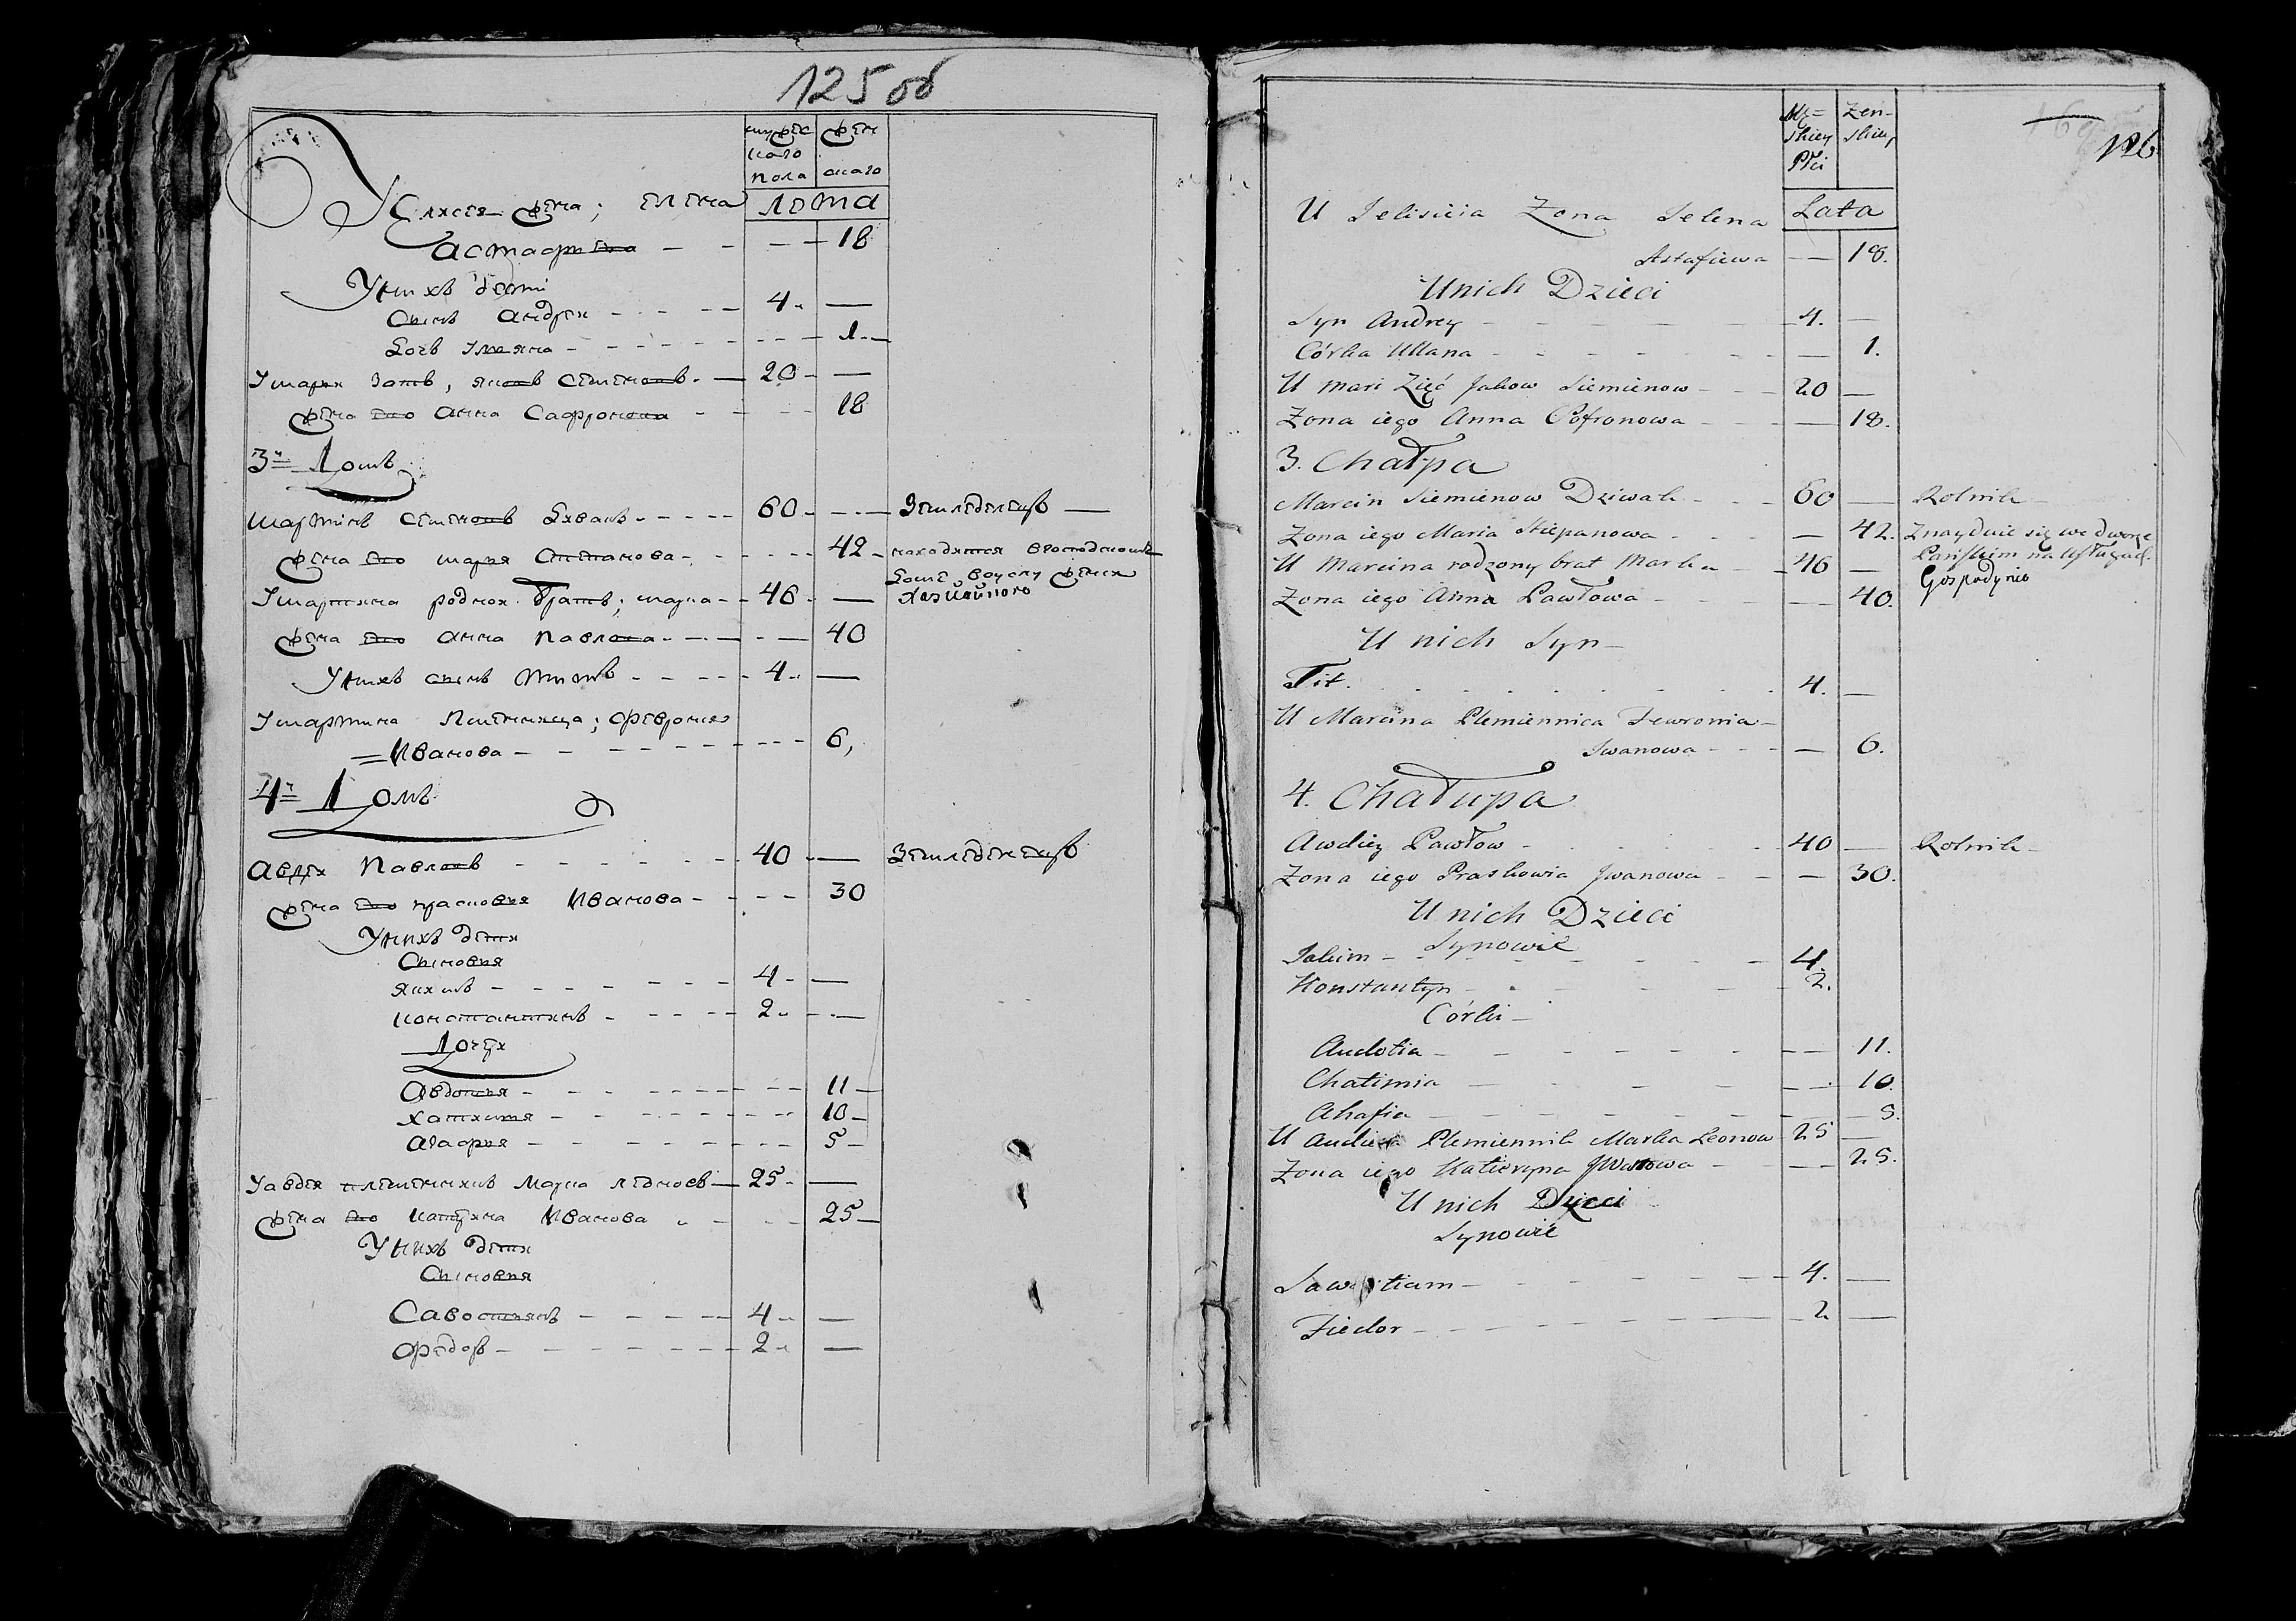 125 об
мужес
каго
пола
жен
скаго
У Елисея жена; елена
лета
Астафиева 18
У нихъ дети
Сынъ Андрей 4
Дочь Ульяна 1
У марьи зять, яковъ Семеновъ 20
жена его Анна Сафронова 18
3й Домъ
мартинъ Семеновъ 60 Земледелецъ
жена его марья Степанова 42 находится в господскомъ
доме
У мартина родной братъ; марка 46
жена его Анна Павлова 40
У нихъ сынъ титъ 4
У мартина племяница; Феврония
Иванова 6
4й Домъ
Авдей Павловъ 40 Земледелецъ
жена его прасковья Иванова 30
У нихъ дети
Сыновья
якимъ 4
константинъ 2
Дочери
Авдотья 11
хатимья 10
Агафья 5
У авдея племянникъ Марка леоновъ 25
жена его катерина Иванова 25
У нихъ дети
Сыновья
Савостьянъ 4
Федоръ 2
126
Mę=
skiey
Płci
Żen-
skiey
U Jelisieia Zona Jelena Lata
Astafiewa 18.
U nich Dzieci
Syn Andrey 4.
Córka Ullana 1.
U mari Zięć Jakow Siemienow 20
Zona iego Anna Sofronowa 18.
3. Chałpa
Marcin Siemienow Dziwak 60 Rolnik
Zona iego Maria Stiepanowa 42. Znayduie się we dworze
U Marcina rodzony brat Marka 46 Pańskim na usługach
Zona iego Anna Pawłowa 40. Gospodynio
U nich Syn
Tit. 4.
U Marcina Plemiennica Fewronia
Iwanowa 6.
4. Chałupa
Awdiey Pawłow 40 Rolnik
Zona iego Praskowia Jwanowa 30.
U nich Dzieci
Synowie
Jakim 4.
Konstantyn 2.
Córki
Audotia 11.
Chatimia 10.
Ahafia 5.
U Audieia Plemiennik Marka Leonow 25
Zona iego Katieryna Jwanowa 25.
U nich Dzieci
Synowie
Sawostian 4.
Fiedor 2